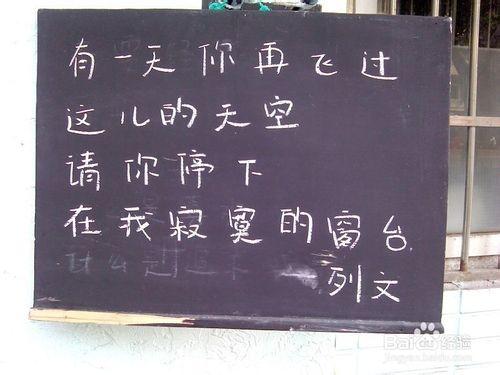 有一天你再飞过
这儿的天空
请你停下
在我寂寞的窗台
列文
Baidu经验
jingyan.baidu.com